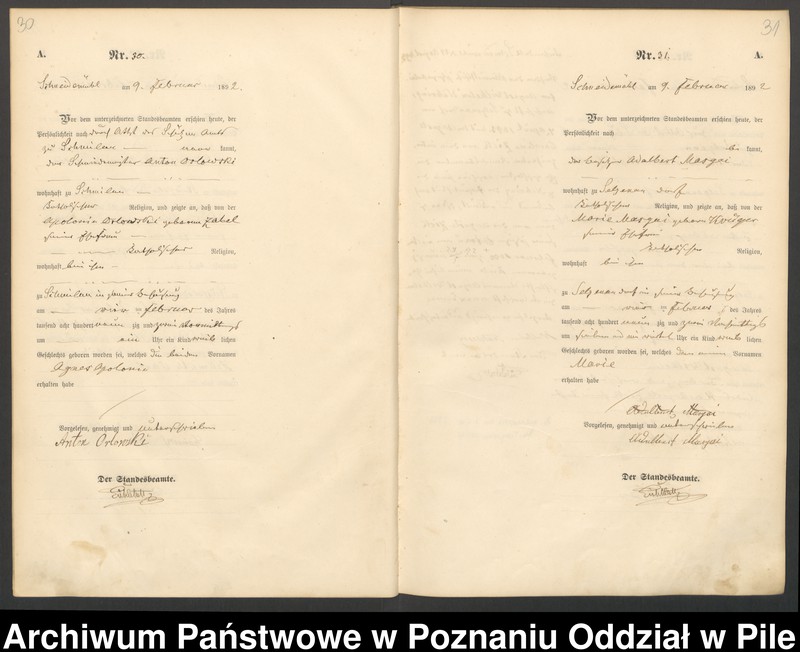 30
A.
Nr. 30.
Schneidemühl am 9. Februar 1892.
Vor dem unterzeichneten Standesbeamten erschien heute, der
Persönlichkeit nach durch Attest des
zu Schmilau kannt,
der Schmiedemeister Anton Orlowski
wohnhaft zu Schmilau
katholischer Religion, und zeigte an, daß von der
Apolonia Orlowski geborenen
seiner Ehefrau
katholischer Religion,
wohnhaft bei ihm
zu Schmilau in seiner Behausung
am vier Februar des Jahres
tausend acht hundert neunzig und zwei Vormittags
um ein Uhr ein Kind weiblichen
Geschlechts geboren worden sei, welches die beiden Vornamen
Agnes Apolonia
erhalten habe
Vorgelesen, genehmigt und unterschrieben
Anton Orlowski
Der Standesbeamte.
31
Nr. 31.
A.
Schneidemühl am 9. Februar 1892
Vor dem unterzeichneten Standesbeamten erschien heute, der
Persönlichkeit nach
bekannt,
der Besitzer Adalbert
wohnhaft zu dorf
katholischer Religion, und zeigte an, daß von der
Marie geborn Krüger
seiner Ehefrau
katholischer Religion,
wohnhaft bei ihm
zu dorf in seiner Behausung
am vier Februar des Jahres
tausend acht hundert neunzig und zwei Nachmittags
um sieben und ein viertel Uhr ein Kind weiblichen
Geschlechts geboren worden sei, welches den Vornamen
Marie
erhalten habe
Adalbert
Vorgelesen, genehmigt und unterschrieben
Adalbert
Der Standesbeamte.
Archiwum Państwowe w Poznaniu Oddział w Pile